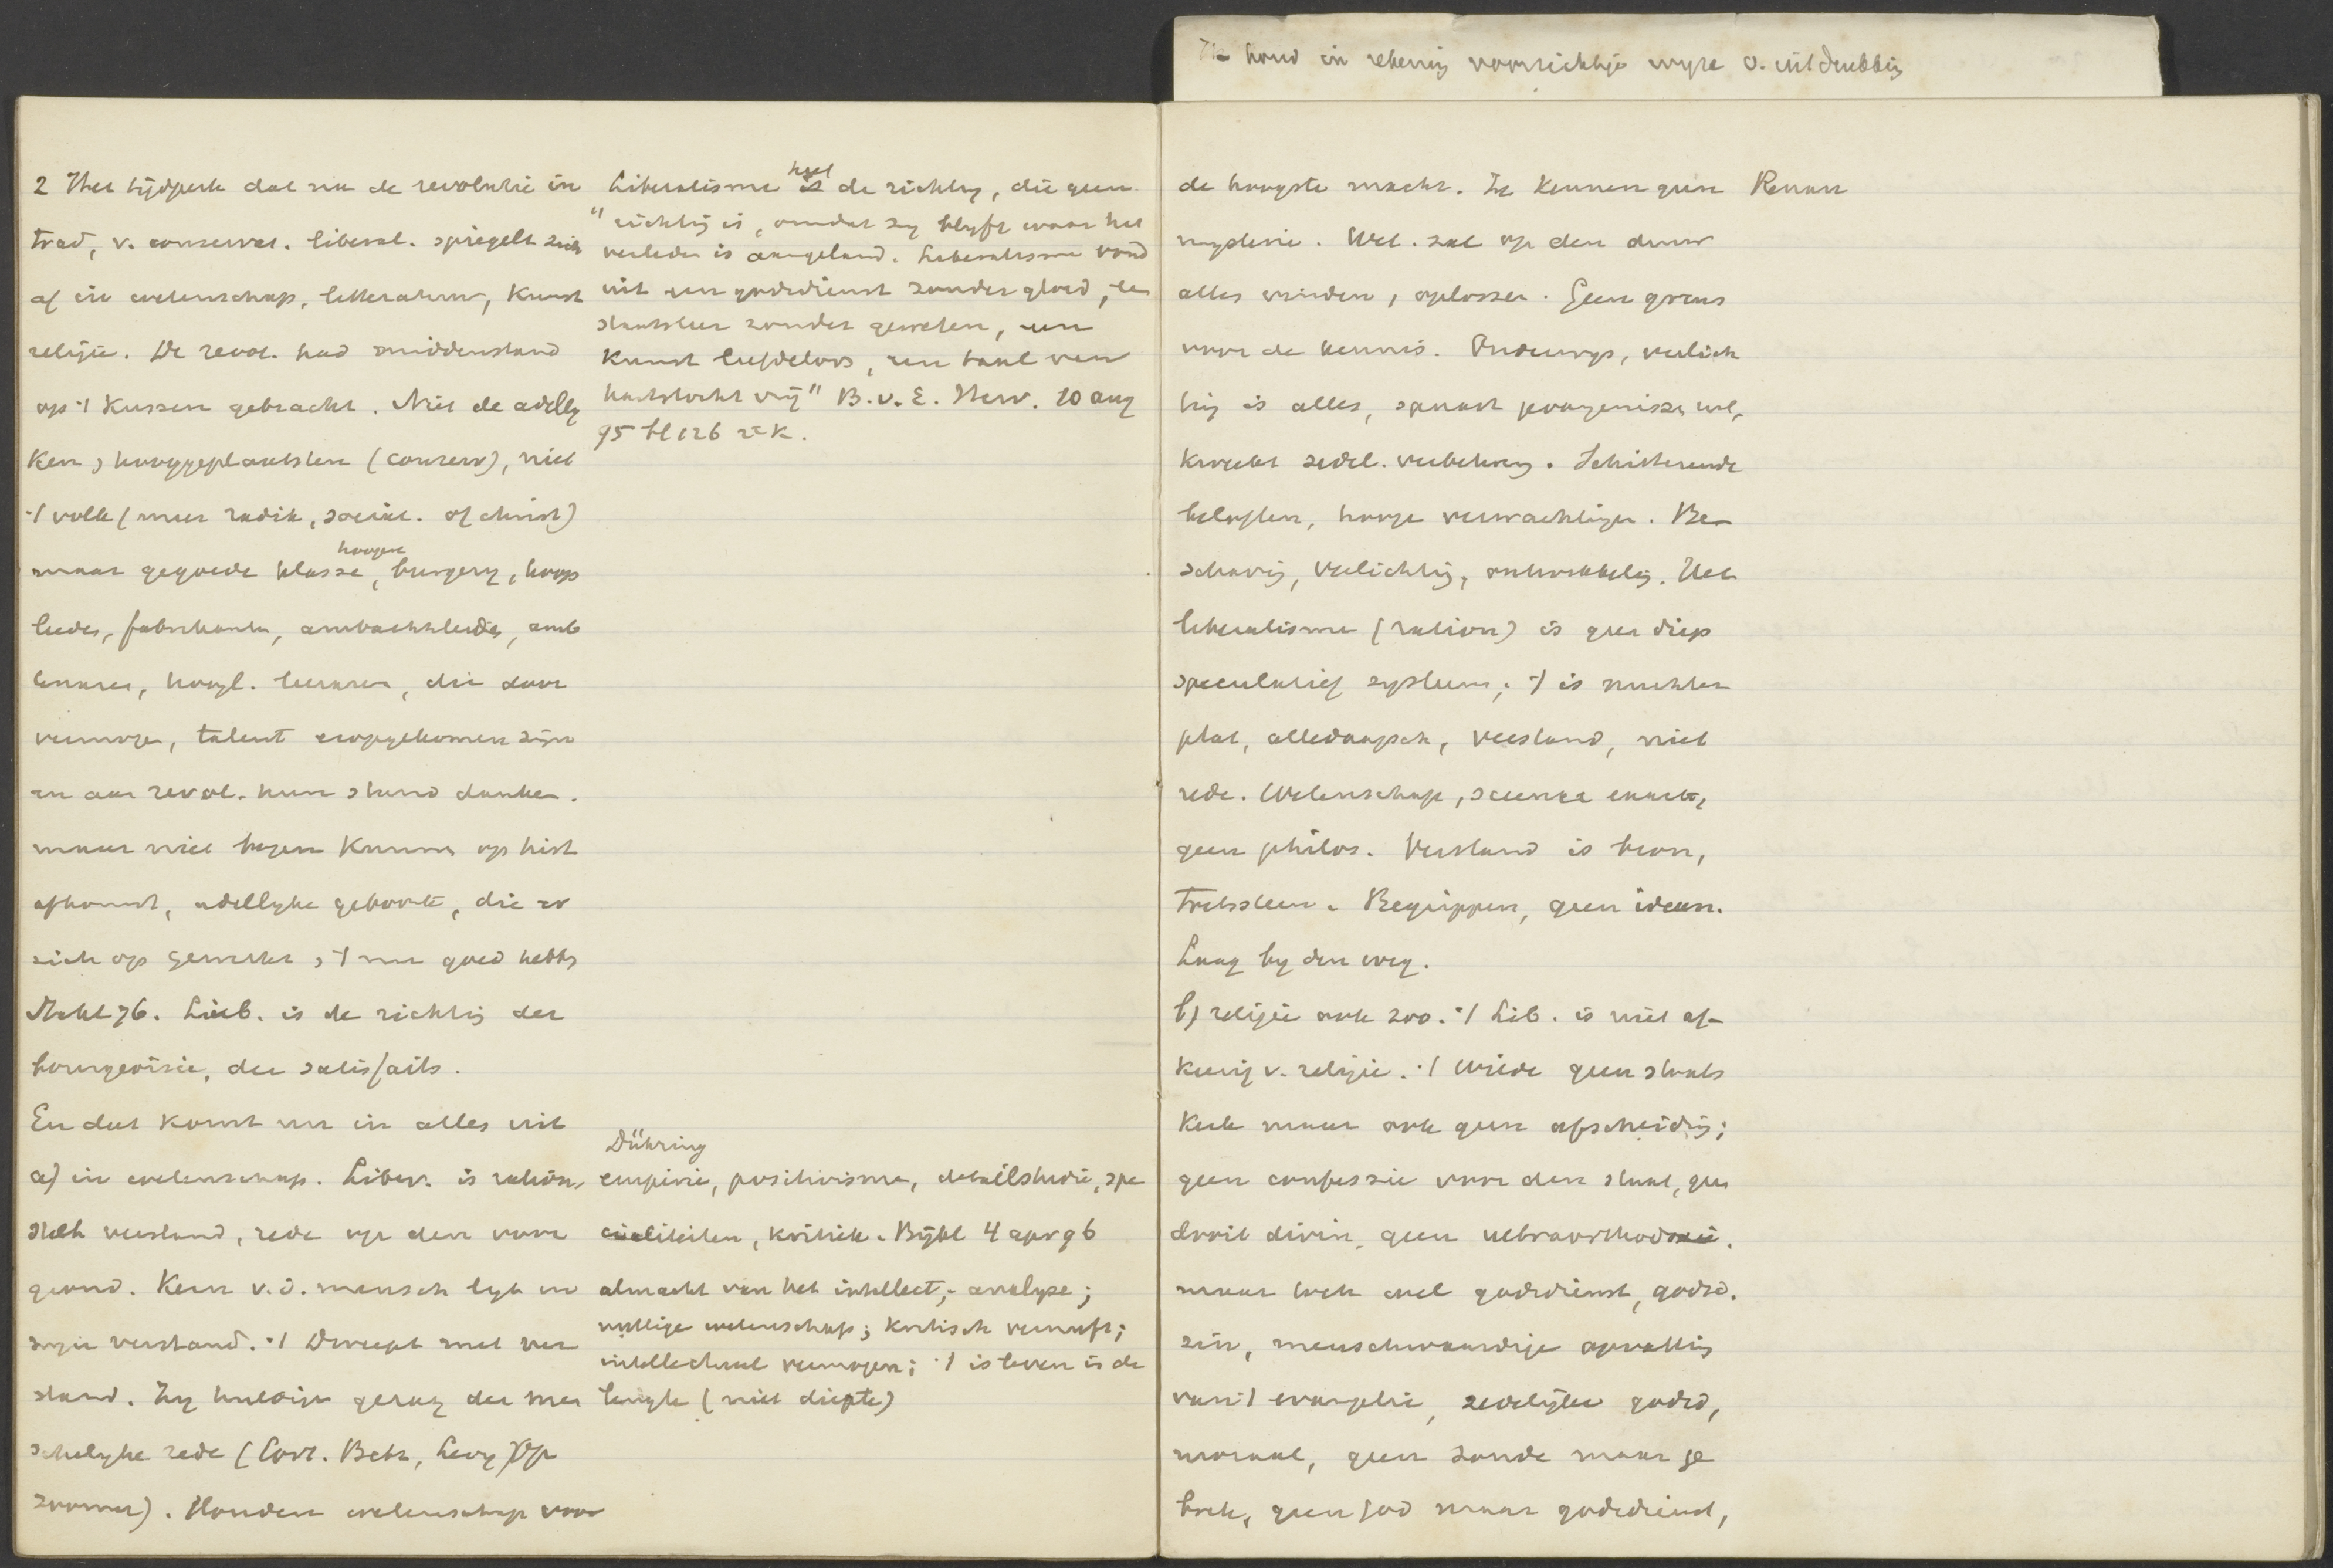 houd in rekenig voorzichtige wyze v. uitdrukkig
2 Het tijdperk dat nu de revolutie in
trad, v. conservat. liberal. spiegelt zich
af in wetenschap, litteratuur, kunst
religie. De revol. had middenstand
op 't kussen gebracht. Niet de adelly
ken, hooggeplaatsten (conserv), niet
't volk (meer radik, sociaal. of christ)
maar gegoede klasse, hoogere burgery, koop
lieden, fabrikanten, ambachtslieden, amb
tenaren, hoogl. leeraren, die door
vermogen, talent eropgekomen zijn
en aan revol. hun stand danken.
maar niet bogen kunnen op hist
afkomst, adellyke geboorte, die er
zich op gewerkt, 't nu goed hebbn
Lib. is de richtig der
bourgeoisie, der satisfaits.
En dat komt nu in alles uit
a) in wetenschap. Liber. is ration,
stelt verstand, rede op den voor
grond. Kern v. d. mensch ligt in
zyn verstand. 't Dweept met ver
stand. Zy huldige gezag der men
schelyke rede (Levy Op
zoomer). Houden wetenschap voor
Liberalisme heet de richtig, die geen
"richtig is, omdat zy blyft waar het
verleden is aangeland. Liberalisme vond
uit een godsdienst zonder gloed, een
staatsleer zonder geweten, een
kunst liefdeloos, een taal van
hartstocht vrij" B. v. E. Herv. 10 aug
95 bl 126 2e k.
Dühring
empirie, positivisme, detailstudie, spe
cialiteiten, kritiek. Bijbl 4 apr 96
almacht van het intellect, analyse;
nuttige wetenschap; kritisch vernuft;
intellectueel vermogen; 't is leven in de
lengte (niet diepte)
de hoogste macht. Ze kennen geen Renan
mysterie. Wet. zal op den duur
alles vinden, oplossen. Geen grens
voor de kennis. Onderwys, verlich
tig is alles, spaart gevangenissen uit,
kweekt zedel. verbetering. Schitterende
beloften, hooge verwachtigen. Be-
schavig, verlichtig, ontwikkelig. Het
liberalisme (ration) is geen diep
speculatief systeem; 't is nuchter
plat, alledaagsch, verstand, niet
rede. Wetenschap, science exacte,
geen philos. Verstand is bron,
toetssteen. Begrippen, geen ideen.
Laag by den weg.
b) religie ook zoo. 't Lib. is niet af-
keerig v. religie. 't Wilde geen staats
kerk maar ook geen afscheidig;
geen confessie voor den staat, geen
droit divin, geen ultraorthodoxie.
maar toch wel godsdienst, godsd.
zin, menschwaardige opvattig
van 't evangelie, zedelijke godsd,
moraal, geen zonde maar ge
brek, geen God maar godsdienst,